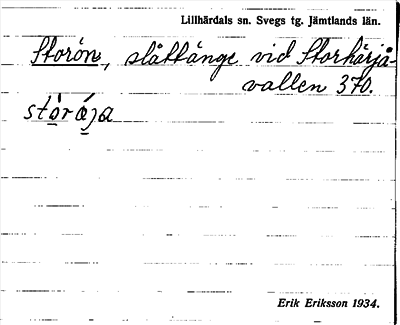 Lillhärdals sn. Svegs tg. Jämtlands län.
Storön, slåttänge vid Storhärjå-
vallen 370.
stórája
Erik Eriksson 1934.